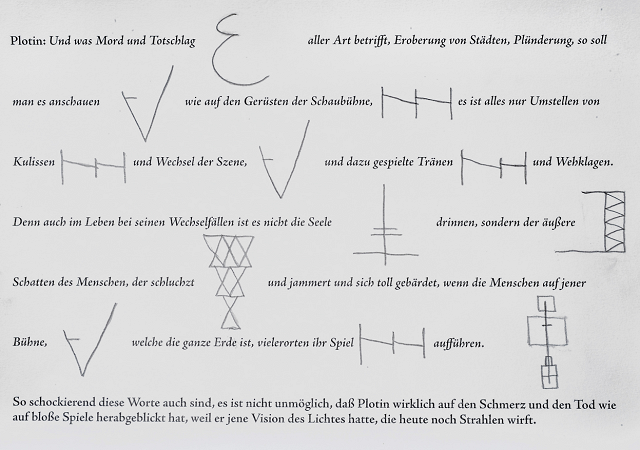 Plotin: Und was Mord und Totschlag aller Art betrifft, Eroberung von Städten, Plünderung, so soll
man es anschauen wie auf den Gerüsten der Schaubühne, es ist alles nur Umstellen von
Kulissen und Wechsel der Szene, und dazu gespielte Tränen und Wehklagen.
Denn auch im Leben bei seinen Wechselfällen ist es nicht die Seele drinnen, sondern der äußere
Schatten des Menschen, der schluchzt und jammert und sich toll gebärdet, wenn die Menschen auf jener
Bühne, welche die ganze Erde ist, vielerorten ihr Spiel aufführen.
So schockierend diese Worte auch sind, es ist nicht unmöglich, daß Plotin wirklich auf den Schmerz und den Tod wie
auf bloße Spiele herabgeblickt hat, weil er jene Vision des Lichtes hatte, die heute noch Strahlen wirft.